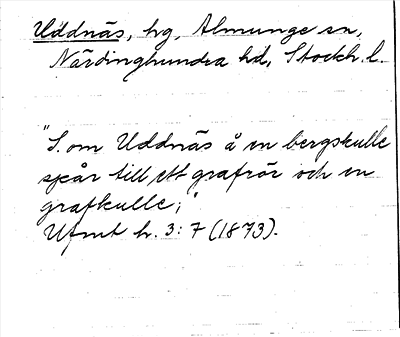 Uddnäs, hg, Almunge sn,
Närdinghundra hd, Stockh. l.
"S. om Uddnäs å en bergskulle
spår till ett grafrör och en
grafkulle;"
Upmt h. 3:7 (1873).